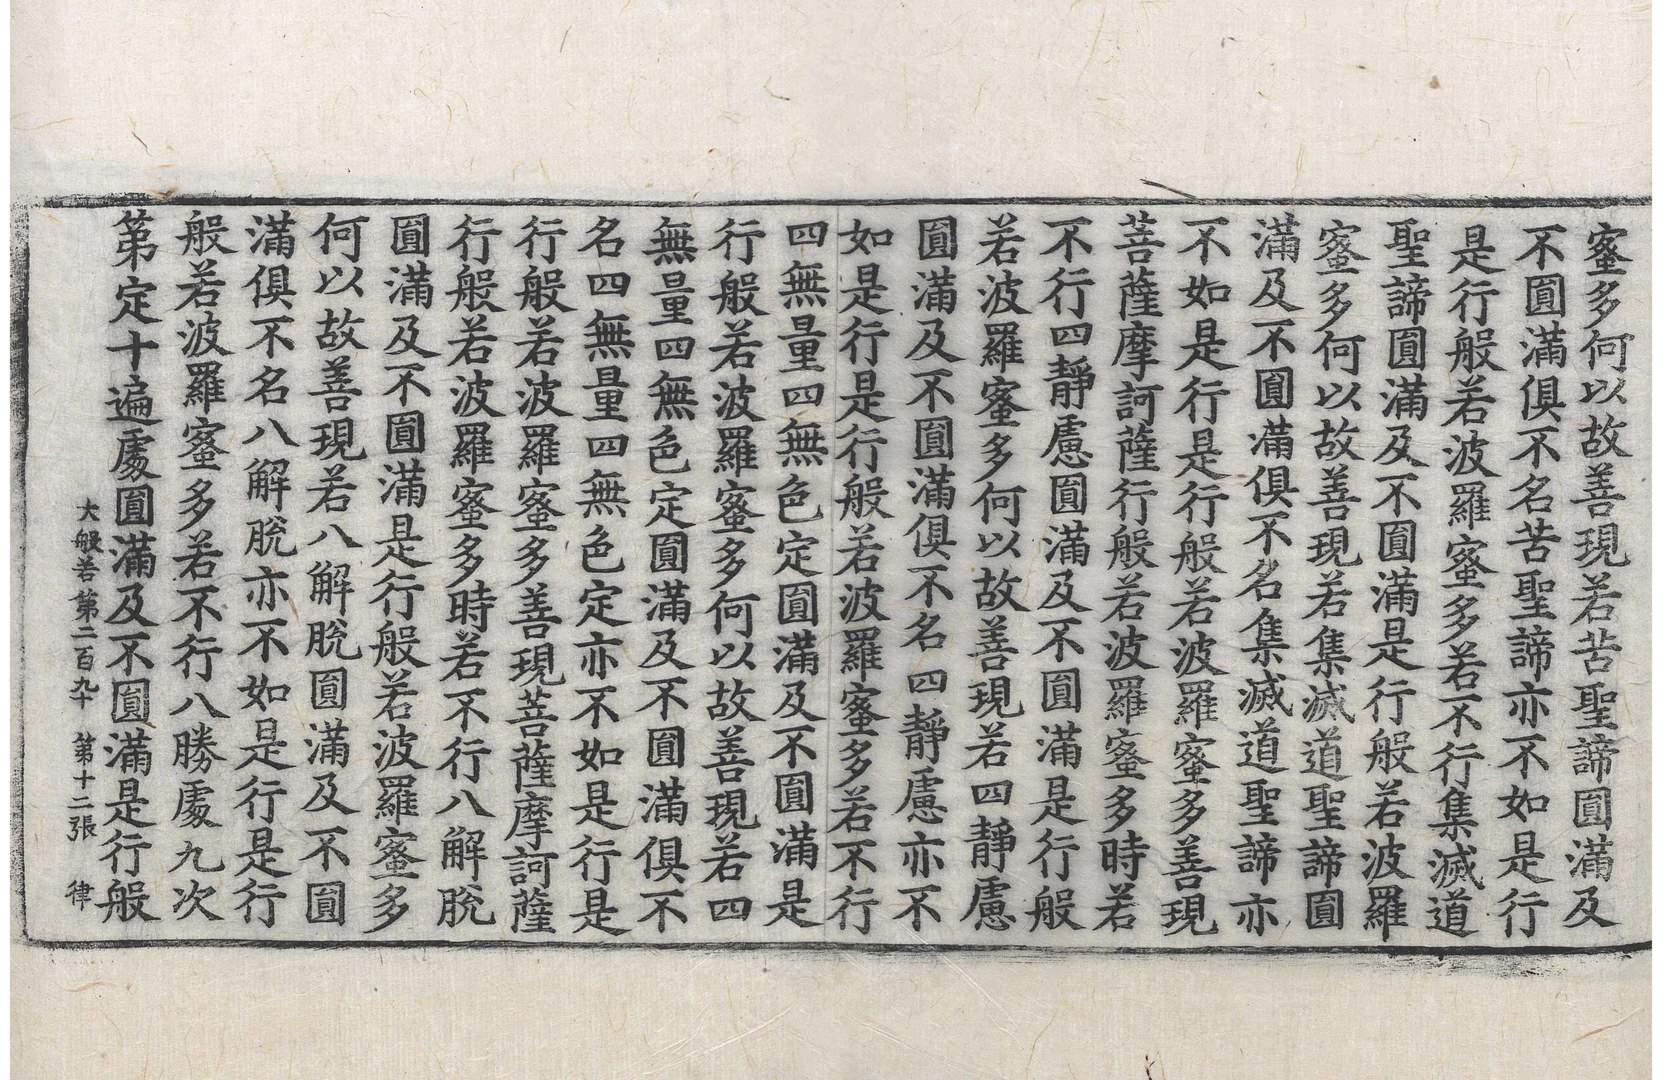 蜜多何以故善現若苦聖諦圓滿及
不圓滿俱不名苦聖諦亦不如是行
是行般若波羅蜜多若不行集滅道
聖諦圓滿及不圓滿是行般若波羅
蜜多何以故善現若集滅道聖諦圓
滿及不圓滿俱不名集滅道聖諦亦
不如是行是行般若波羅蜜多善現
菩薩摩訶薩行般若波羅蜜多時若
不行四靜慮圓滿及不圓滿是行般
若波羅蜜多何以故善現若四靜慮
圓滿及不圓滿俱不名四靜慮亦不
如是行是行般若波羅蜜多若不行
四無量四無色定圓滿及不圓滿是
行般若波羅蜜多何以故善現若四
無量四無色定圓滿及不圓滿俱不
名四無量四無色定亦不如是行是
行般若波羅蜜多善現菩薩摩訶薩
行般若波羅蜜多時若不行八解脫
圓滿及不圓滿是行般若波羅蜜多
何以故善現若八解脫圓滿及不圓
滿俱不名八解脫亦不如是行是行
般若波羅蜜多若不行八勝處九次
第定十遍處圓滿及不圓滿是行般
大般若第二百九十 第十二張 律